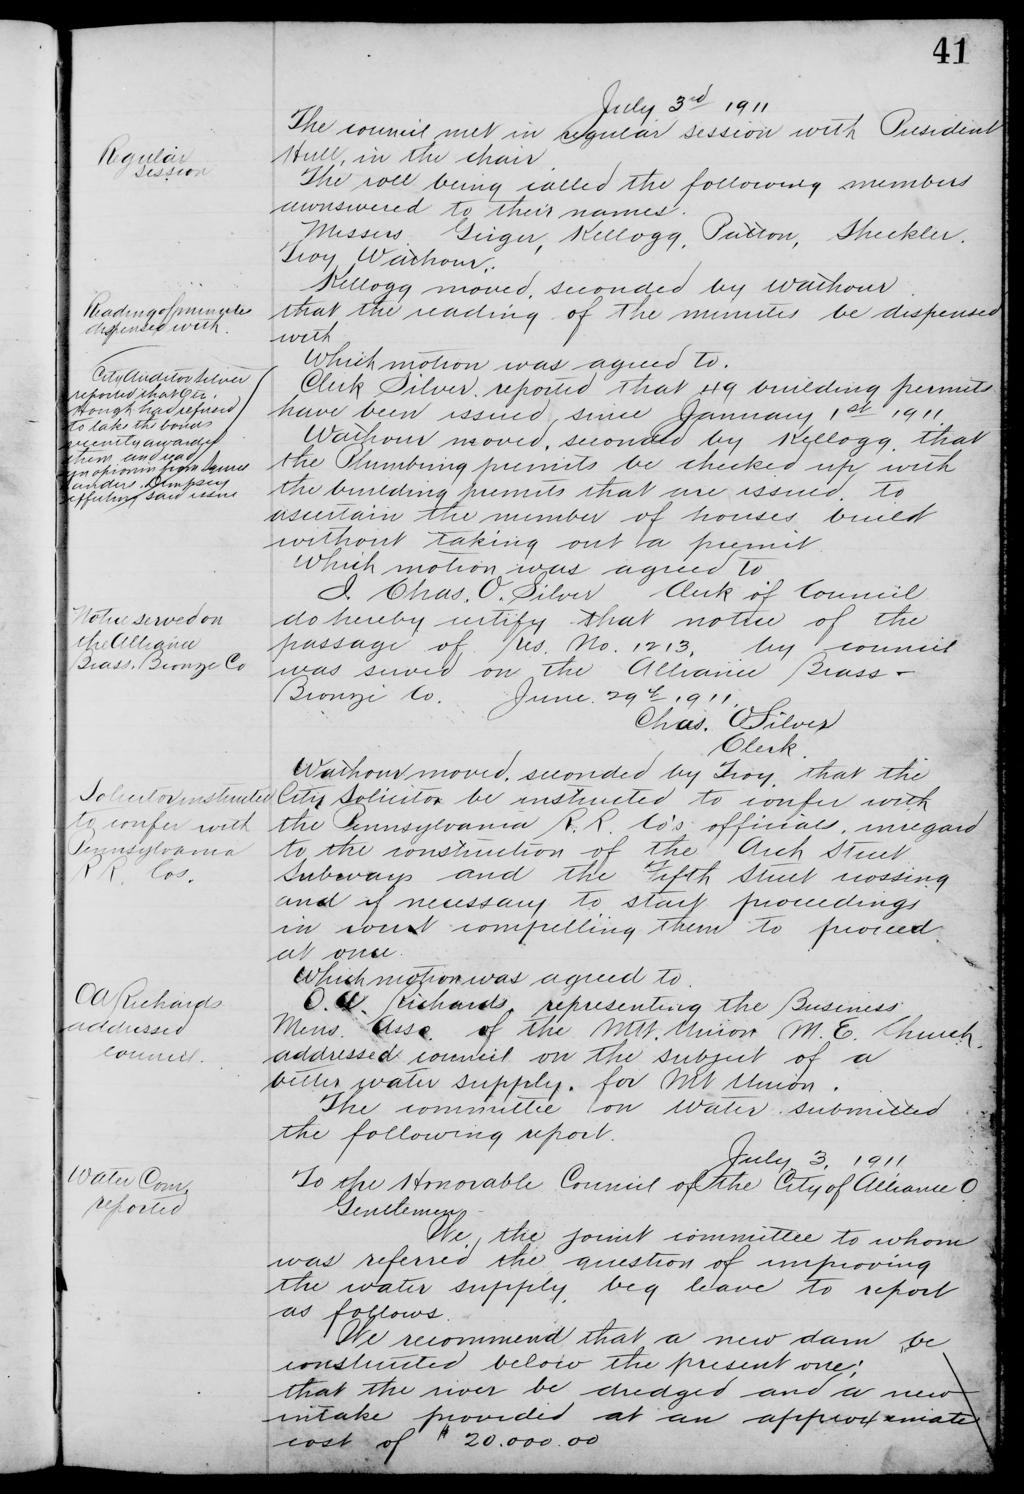 41
July 3rd 1911
The council met in regular session with President
Hull, in the chair
Regular
session
The roll being called the following members
awnswered to their names.
Messers Geiger, Kellogg, Patton, Sheckler.
Troy Waihour.
Kellogg moved, seconded by Waihour
that the reading of the minutes be dispensed
with
Reading of minutes
dispensed with.
Which motion was agreed to.
Clerk Silver reported that 49 building permits
have been issued since January 1st 1911
City Auditor Silver
reported that Geo.
Hough had refused
to take the bonds
recently awarded
them and had
an opinion from
Sanders Dempsey
affecting said issue
Waihour moved, seconded by Kellogg that
the Plumbing permits be checked up with
the building permits that are issued. to
ascertain the number of houses build
without taking out a permit
Which motion was agreed to
I. Chas. O. Silver Clerk of Council
do hereby certify that notice of the
passage of Res. No. 1213, by council
was served on the Alliance Brass -
Bronze Co. June 29th 1911.
Chas. O Silver
Clerk.
Notice served on
the Alliance
Brass. Bronze Co
Waihour moved. seconded by Troy, that the
City Solicitor be instructed to confer with
the Pennsylvania R. R. Co's officials, inregard
to the construction of the Arch Street
Subways and the Fifth Street crossing
and if necessary to start proceedings
in court compelling them to proceed
at once.
Solicitor instructed
to confer with
Pennsylvania
R R. Cos.
Which motion was agreed to.
O. A. Richards representing the Business
Mens. Asso. of the Mt. Union M. E. Church.
addressed council on the subject of a
better water supply. for Mt Union.
OA Richards
addressed
council.
The committee on Water submitted
the following report.
July 3, 1911
To the Honorable Council of the City of Alliance O.
Gentlemen
Water Com.
reported
We, the joint committee to whom
was referred the question of improving
the water supply, beg leave to report
as follows.
We recommend that a new dam be
constructed below the present one;
that the river be dredged and a new
intake provided at an approximate
cost of $ 20.000.00